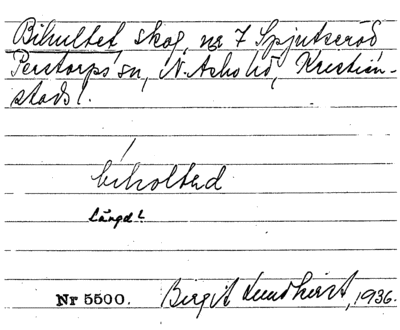 Bihultet skog, nr 7 Spjutseröd,
Perstorps sn, N. Åsbo hd, Kristian-
stads l.
biholtəd
Längd?
Nr 5500. Birgit Lundkvist, 1936.